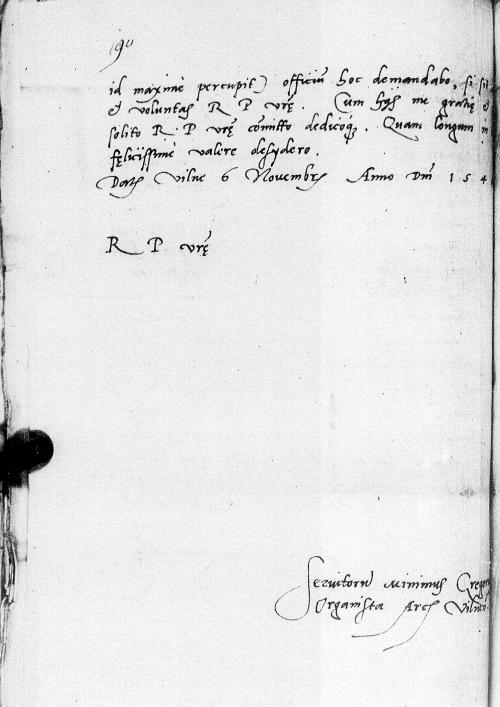 190
id maximè percupit) officiũ hoc demandabo, si sit
et voluntas R P vr̃ę. Cum his me gratię et
solito R. P vr̃ę com̃itto dedicoq́. Quam longum
fęlicissimè valere desydero.
Datę Vilne 6 Novembrs Anno Dñi 154
R P vr̃ę
Servitorũ minimus Gregor
Organista Arcs Vilnen